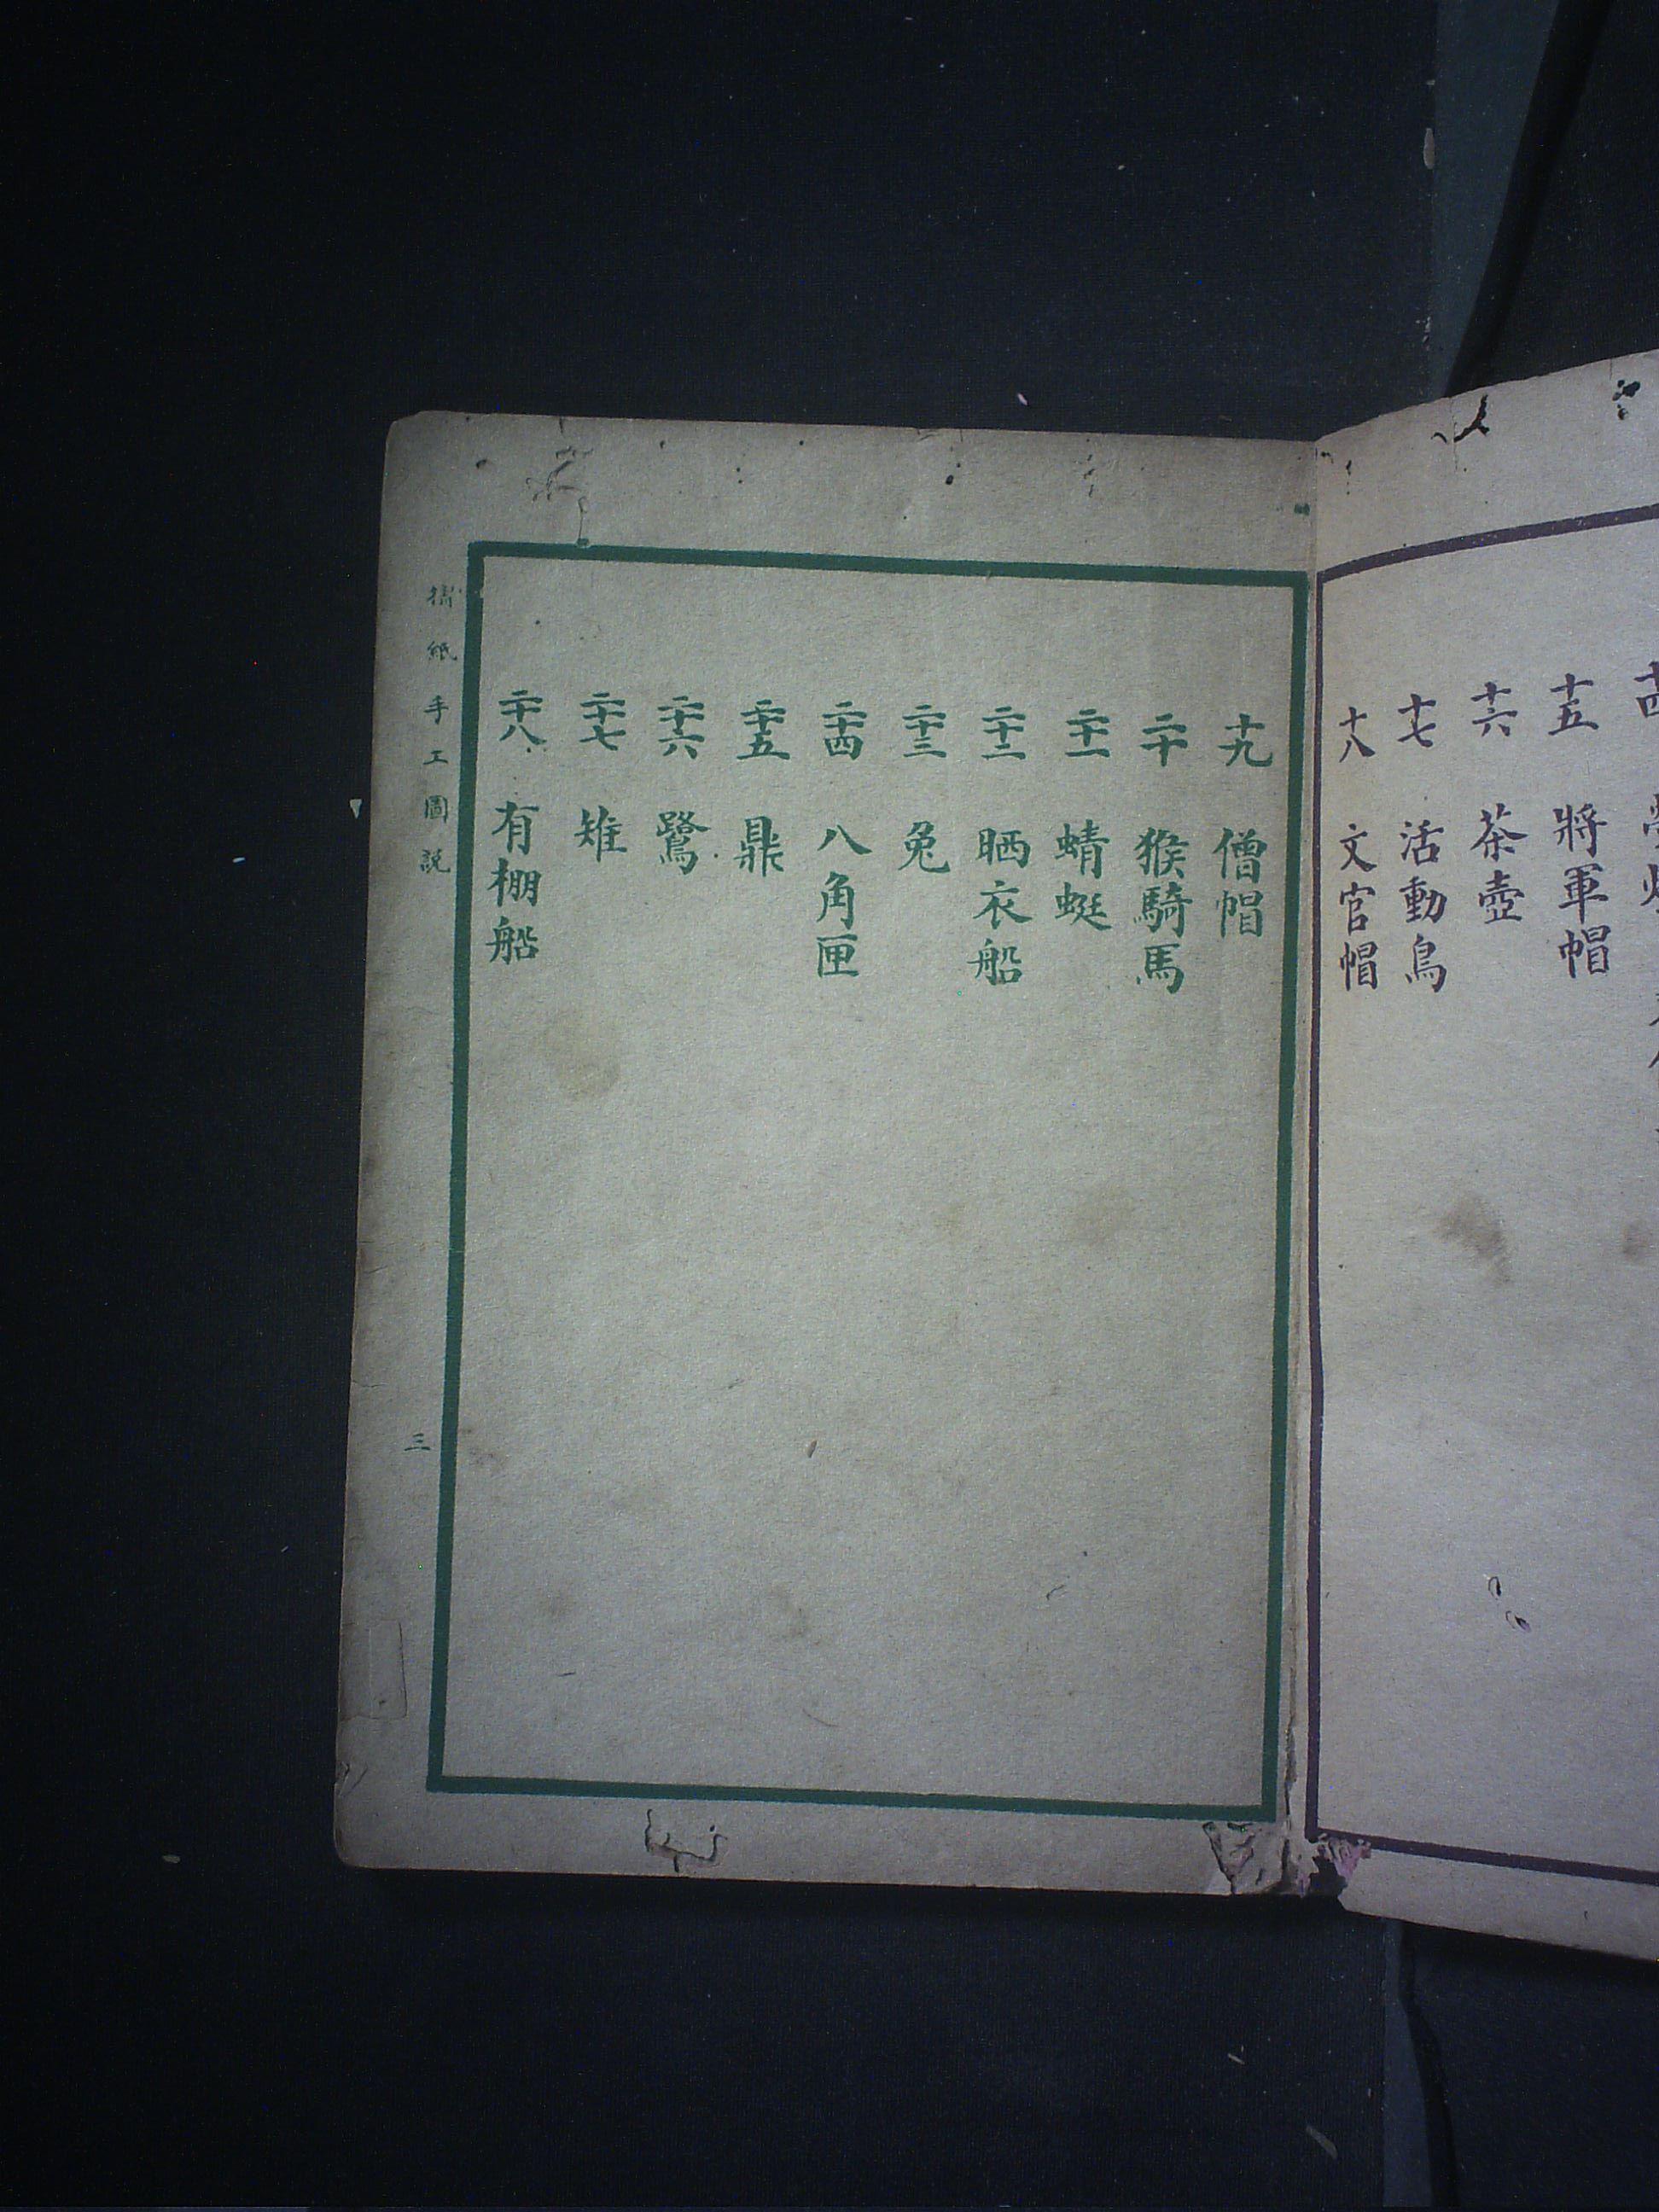 十五 將軍帽
十六 茶壺
十七 活動鳥
十八 文官帽
十九 僧帽
二十 猴騎馬
二十一 蜻蜓
二十二 晒衣船
二十三 兔
二十四 八角匣
二十五 鼎
二十六 鷺
二十七 雉
二十八 有棚船
摺紙手工圖説
三